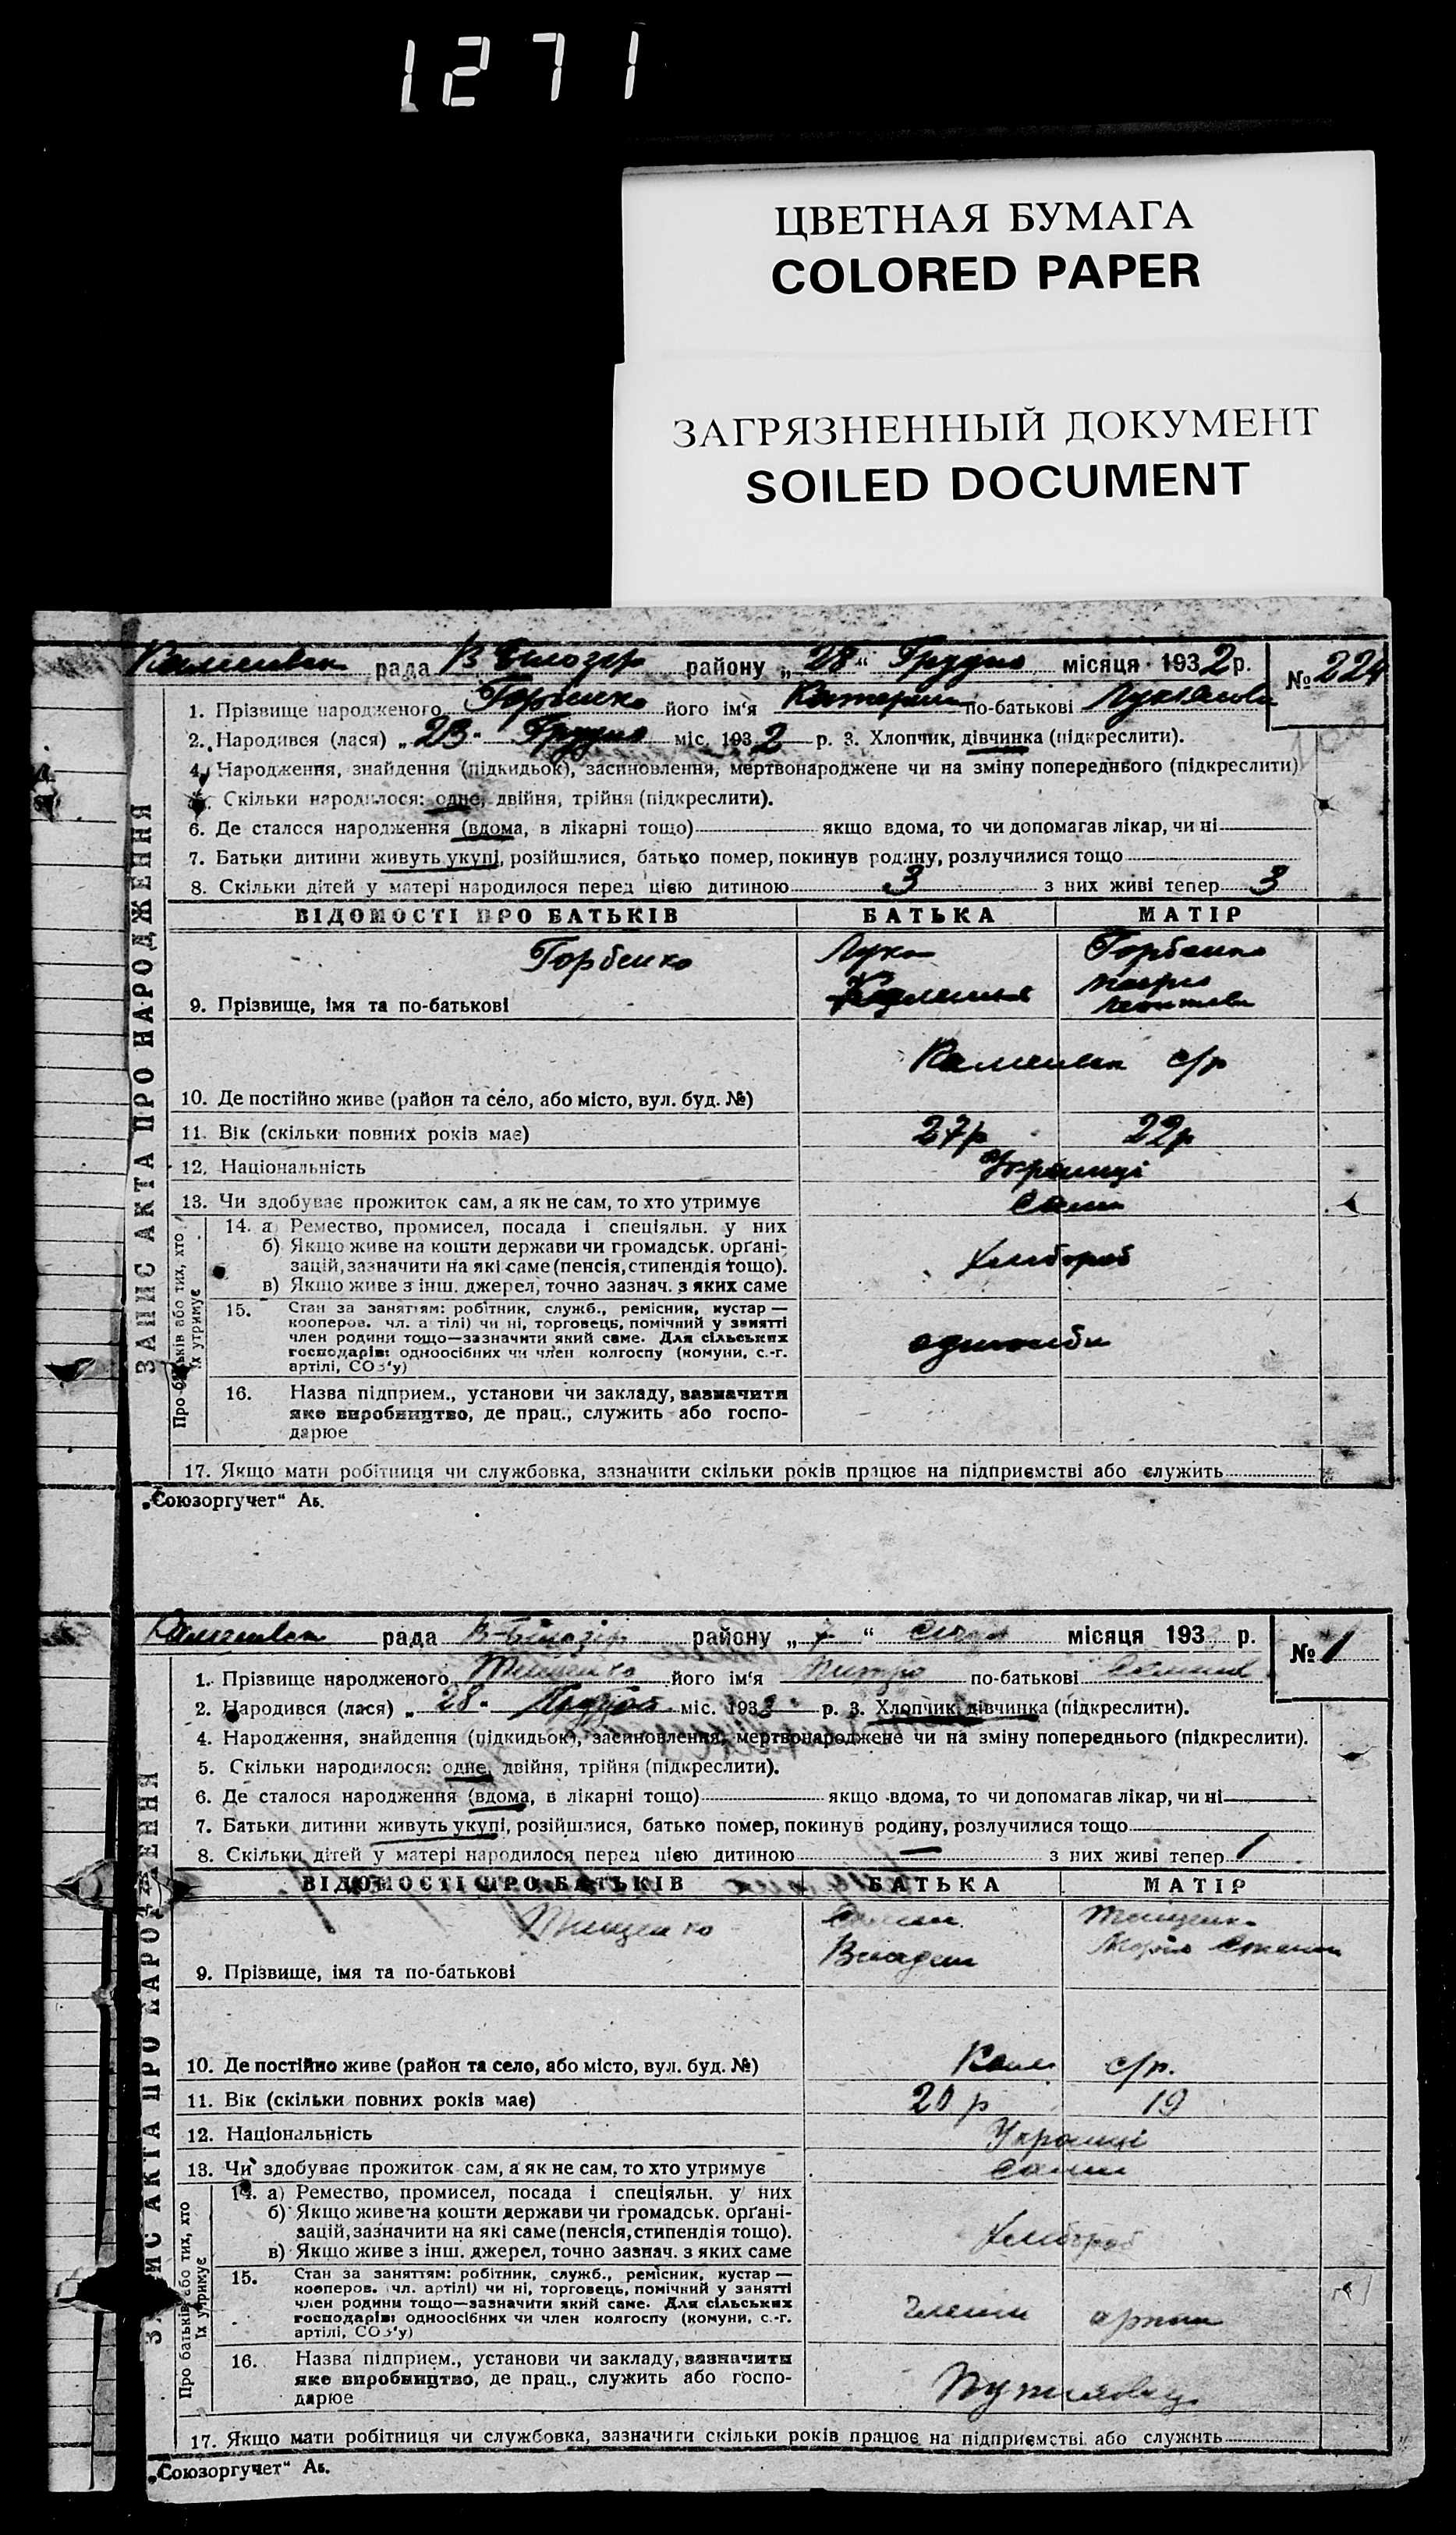 1271
ЦВЕТНАЯ БУМАГА
COLORED PAPER
ЗАГРЯЗНЕННЫЙ ДОКУМЕНТ
SOILED DOCUMENT
ЗАПИС АКТА ПРО НАРОДЖЕННЯ
рада В Білозер району „28“ Грудня місяця 1932 р. № 224
1. Прізвище народженого Горбенко його ім‘я Катерина по-батькові
2. Народився (лася) „23“ Грудня міс. 1932 р. 3. Хлопчик, дівчинка (підкреслити).
4. Народження, знайдення (підкидьок), засиновлення, мертвонароджене чи на зміну попереднього (підкреслити)
5. Скільки народилося: одне, двійня, трійня (підкреслити).
6. Де сталося народження (вдома, в лікарні тощо) якщо вдома, то чи допомагав лікар, чи ні
7. Батьки дитини живуть укупі, розійшлися, батько помер, покинув родину, розлучилися тощо
8. Скільки дітей у матері народилося перед цією дитиною 3 з них живі тепер 3
ВІДОМОСТІ ПРО БАТЬКІВ БАТЬКА МАТІР
Горбенко Лука Горбенко
9. Прізвище, імя та по-батькові
с/р
10. Де постійно живе (район та село, або місто, вул. буд. №)
11. Вік (скільки повних років має) 27р 22р
12. Національність Українці
13. Чи здобуває прожиток сам, а як не сам, то хто утримує Сами
Про батьків або тих, хто їх утримує
14. а Ремество, промисел, посада і спеціяльн. у них
б) Якщо живе на кошти держави чи громадськ. орґані-
зацій, зазначити на які саме (пенсія, стипендія тощо). Хлібороб
в) Якщо живе з інш. джерел, точно зазнач. з яких саме
15. Стан за заняттям: робітник, служб., ремісник, кустар —
кооперов. чл. а тілі) чи ні, торговець, помічний у занятті
член родини тощо—зазначити який саме. Для сільських
господарів: одноосібних чи член колгоспу (комуни, с.-г.
артілі, СОЗ‘у)
16. Назва підприєм., установи чи закладу, зазначити
яке виробництво, де прац., служить або госпо-
дарює
17. Якщо мати робітниця чи службовка, зазначити скільки років працює на підприємстві або служить
„Союзоргучет“ Аб.
ЗАПИС АКТА ПРО НАРОДЖЕННЯ
рада В-Білозір району „7“ Січня місяця 193 р. № 1
1. Прізвище народженого Тищенко його ім‘я Митро по-батькові
2. Народився (лася) „28“ Грудня міс. 193 р. 3. Хлопчик, дівчинка (підкреслити).
4. Народження, знайдення (підкидьок), засиновлення, мертвонароджене чи на зміну попереднього (підкреслити).
5. Скільки народилося: одне, двійня, трійня (підкреслити).
6. Де сталося народження (вдома, в лікарні тощо) якщо вдома, то чи допомагав лікар, чи ні
7. Батьки дитини живуть укупі, розійшлися, батько помер, покинув родину, розлучилися тощо
8. Скільки дітей у матері народилося перед цією дитиною — з них живі тепер 1
ВІДОМОСТІ ПРО БАТЬКІВ БАТЬКА МАТІР
Тищенко Тищенко
Марія
9. Прізвище, імя та по-батькові
10. Де постійно живе (район та село, або місто, вул. буд. №) Кам с/р.
11. Вік (скільки повних років має) 20 р 19
12. Національність Українці
13. Чи здобуває прожиток сам, а як не сам, то хто утримує Сами
Про батьків або тих, хто їх утримує
14. а) Ремество, промисел, посада і спеціяльн. у них
б) Якщо живе на кошти держави чи громадськ. орґані-
зацій, зазначити на які саме (пенсія, стипендія тощо). Хлібороб
в) Якщо живе з інш. джерел, точно зазнач. з яких саме
15. Стан за заняттям: робітник, служб., ремісник, кустар —
кооперов. чл. артілі) чи ні, торговець, помічний у занятті
член родини тощо—зазначити який саме. Для сільських
господарів: одноосібних чи член колгоспу (комуни, с.-г.
артілі, СОЗ‘у)
16. Назва підприєм., установи чи закладу, зазначити
яке виробництво, де прац., служить або госпо-
дарює
17. Якщо мати робітниця чи службовка, зазначити скільки років працює на підприємстві або служить
„Союзоргучет“ Аб.